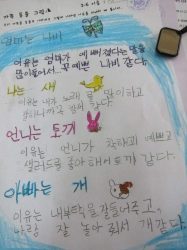 엄마는 나비
이유는 엄마가 예뻐졌다는 말을
많이 들어서.. 꼭 예쁜 나비 같다.
나는 새
이유는 내가 노래를 많이 하고
같다.
언니는 토끼
이유는 언니가 착하고 예쁘고
샐러드를 좋아해서 토끼 같다.
아빠는 개
이유는 내 부탁을 잘 들어주고,
나랑 잘 놀아 줘서 개 같다.